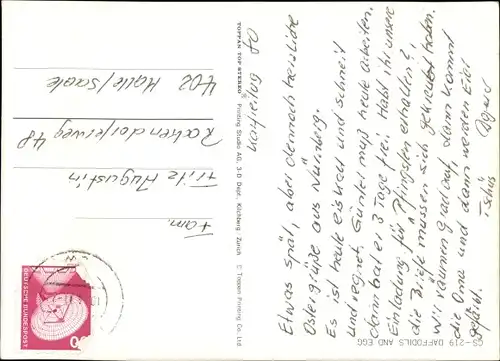 Etwas spät, aber dennoch herzliche
Ostergrüße aus Nürnberg.
Es ist heute eiskalt und schneit
und regnet, Günter muß heute arbeiten,
dann hat er 3 Tage frei. Habt ihr unsere
Einladung für Pfingsten erhalten?
die Briefe müssen sich gekreuzt haben.
Wir räumen grad auf, dann kommt
die Oma und dann werden Eier
gefärbt.
Tschüs
CS-219 DAFFODILS AND EGG
TOPPAN TOP STEREO® Printing Studio AG, 3-D Dept., Kilchberg/Zürich © Toppan Printing Co. Ltd.
Karfreitag 80
Fam.
Fritz Augustin
48
402 Halle/Saale
DEUTSCHE BUNDESPOST